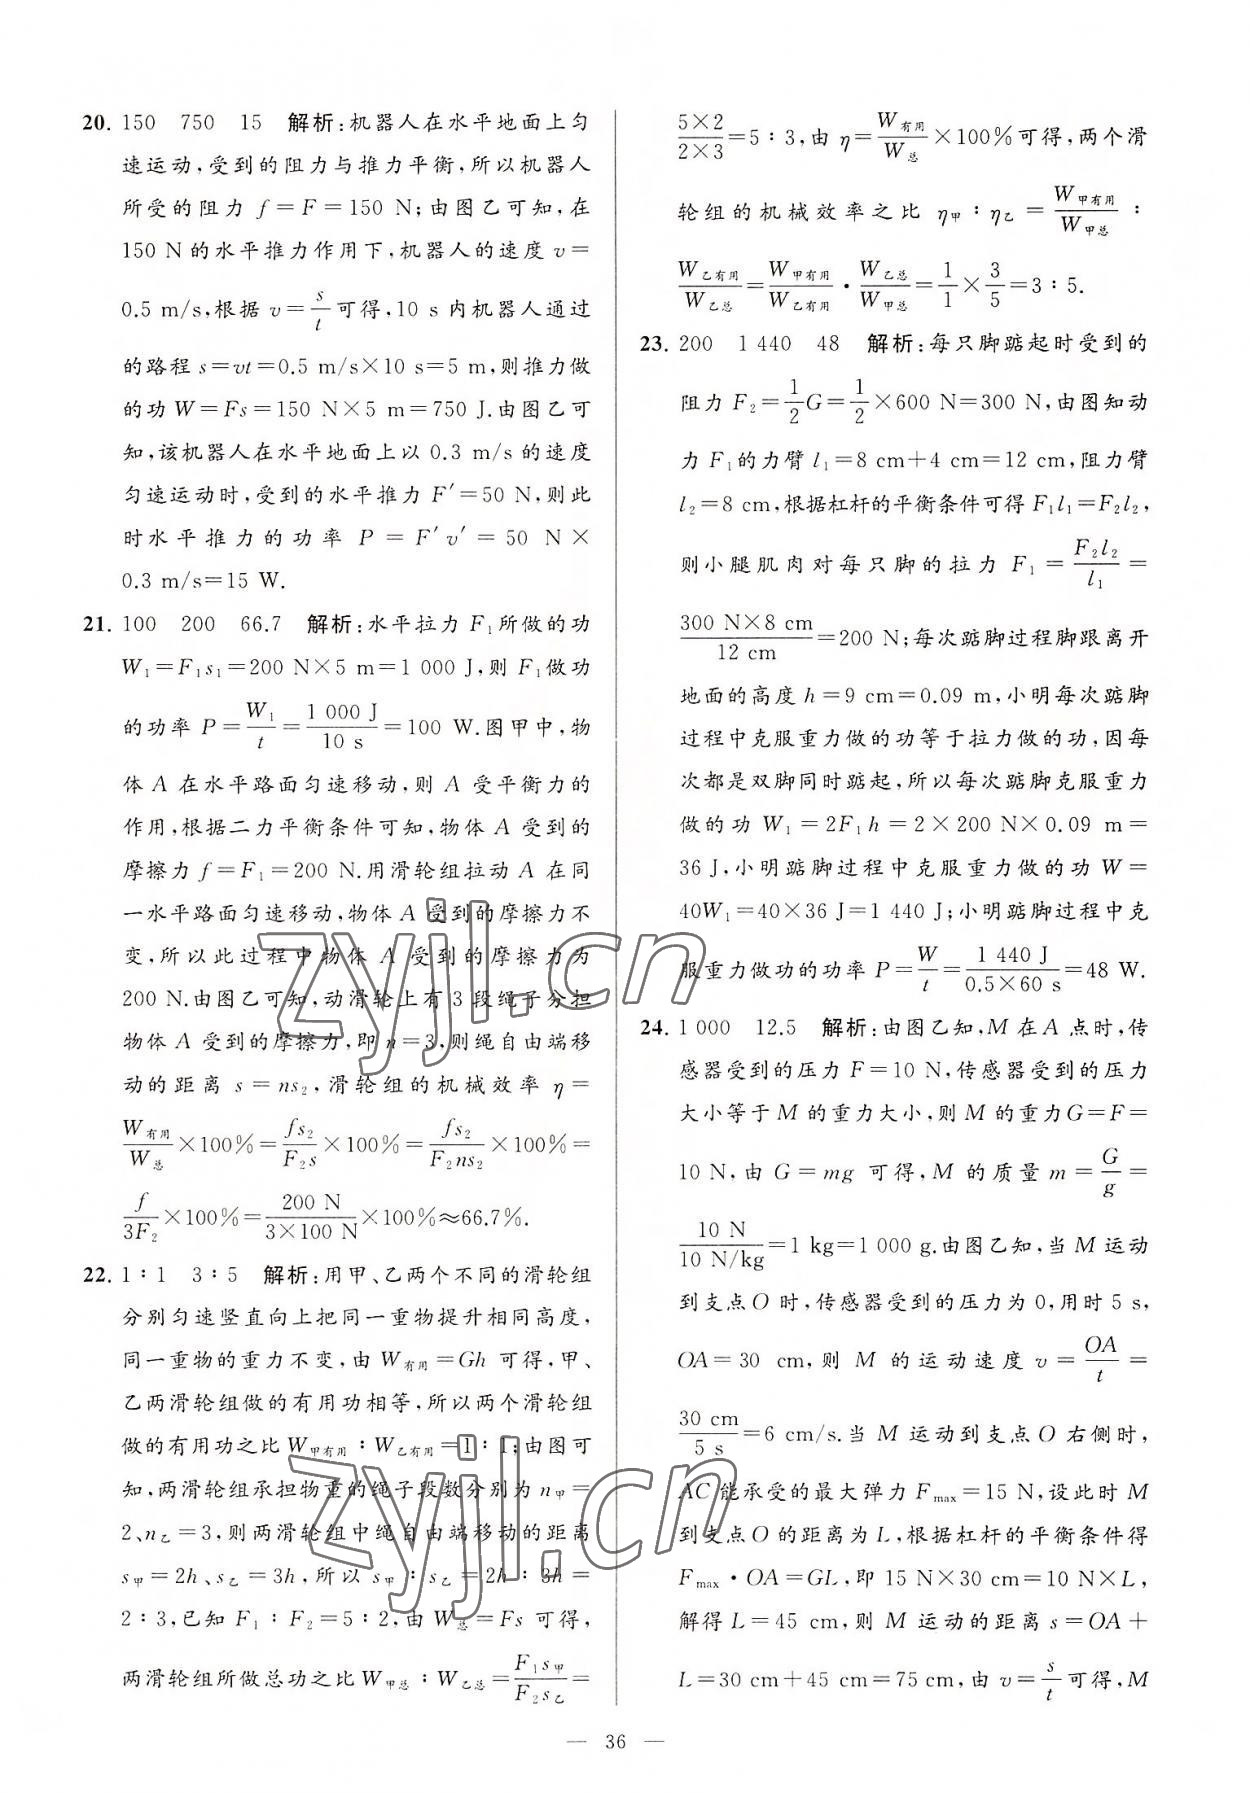 20. 150 750 15 解析:机器人在水平地面上匀
速运动,受到的阻力与推力平衡,所以机器人
所受的阻力 f=F=150 N;由图乙可知,在
150 N的水平推力作用下,机器人的速度 v=
0.5 m/s,根据 v=s/t 可得,10 s内机器人通过
的路程 s=vt=0.5 m/s×10 s=5 m,则推力做
的功 W=Fs=150 N×5 m=750 J.由图乙可
知,该机器人在水平地面上以 0.3 m/s 的速度
匀速运动时,受到的水平推力 F′=50 N,则此
时水平推力的功率 P=F′v′=50 N×
0.3 m/s=15 W.
21. 100 200 66.7 解析:水平拉力 F₁所做的功
W₁=F₁s₁=200 N×5 m=1 000 J,则 F₁做功
的功率 P=W₁/t=1 000 J/10 s=100 W.图甲中,物
体 A 在水平路面匀速移动,则 A 受平衡力的
作用,根据二力平衡条件可知,物体 A 受到的
摩擦力 f=F₁=200 N.用滑轮组拉动 A 在同
一水平路面匀速移动,物体 A 受到的摩擦力不
变,所以此过程中物体 A 受到的摩擦力为
200 N.由图乙可知,动滑轮上有 3 段绳子分担
物体 A 受到的摩擦力,即 n=3,则绳自由端移
动的距离 s=ns₂,滑轮组的机械效率 η=
W有用/W总×100%=fs₂/F₂s×100%=fs₂/F₂ns₂×100%=
f/3F₂×100%=200 N/3×100 N×100%≈66.7%.
22. 1∶1 3∶5 解析:用甲、乙两个不同的滑轮组
分别匀速竖直向上把同一重物提升相同高度,
同一重物的重力不变,由 W有用=Gh 可得,甲、
乙两滑轮组做的有用功相等,所以两个滑轮组
做的有用功之比 W甲有用∶W乙有用=1∶1;由图可
知,两滑轮组承担物重的绳子段数分别为 n甲=
2、n乙=3,则两滑轮组中绳自由端移动的距离
s甲=2h、s乙=3h,所以 s甲∶s乙=2h∶3h=
2∶3,已知 F₁∶F₂=5∶2,由 W总=Fs 可得,
两滑轮组所做总功之比 W甲总∶W乙总=F₁s甲/F₂s乙=
5×2/2×3=5∶3,由 η=W有用/W总×100%可得,两个滑
轮组的机械效率之比 η甲∶η乙=W甲有用/W甲总∶
W乙有用/W乙总=W甲有用/W乙有用·W乙总/W甲总=1/1×3/5=3∶5.
23. 200 1 440 48 解析:每只脚踮起时受到的
阻力 F₂=1/2G=1/2×600 N=300 N,由图知动
力 F₁的力臂 l₁=8 cm+4 cm=12 cm,阻力臂
l₂=8 cm,根据杠杆的平衡条件可得 F₁l₁=F₂l₂,
则小腿肌肉对每只脚的拉力 F₁=F₂l₂/l₁=
300 N×8 cm/12 cm=200 N;每次踮脚过程脚跟离开
地面的高度 h=9 cm=0.09 m,小明每次踮脚
过程中克服重力做的功等于拉力做的功,因每
次都是双脚同时踮起,所以每次踮脚克服重力
做的功 W₁=2F₁h=2×200 N×0.09 m=
36 J,小明踮脚过程中克服重力做的功 W=
40W₁=40×36 J=1 440 J;小明踮脚过程中克
服重力做功的功率 P=W/t=1 440 J/0.5×60 s=48 W.
24. 1 000 12.5 解析:由图乙知,M 在 A 点时,传
感器受到的压力 F=10 N,传感器受到的压力
大小等于 M 的重力大小,则 M 的重力 G=F=
10 N,由 G=mg 可得,M 的质量 m=G/g=
10 N/10 N/kg=1 kg=1 000 g.由图乙知,当 M 运动
到支点 O 时,传感器受到的压力为 0,用时 5 s,
OA=30 cm,则 M 的运动速度 v=OA/t=
30 cm/5 s=6 cm/s.当 M 运动到支点 O 右侧时,
AC 能承受的最大弹力 Fmax=15 N,设此时 M
到支点 O 的距离为 L,根据杠杆的平衡条件得
Fmax·OA=GL,即 15 N×30 cm=10 N×L,
解得 L=45 cm,则 M 运动的距离 s=OA+
L=30 cm+45 cm=75 cm,由 v=s/t 可得,M
— 36 —
zyjl.cn
zyjl.cn